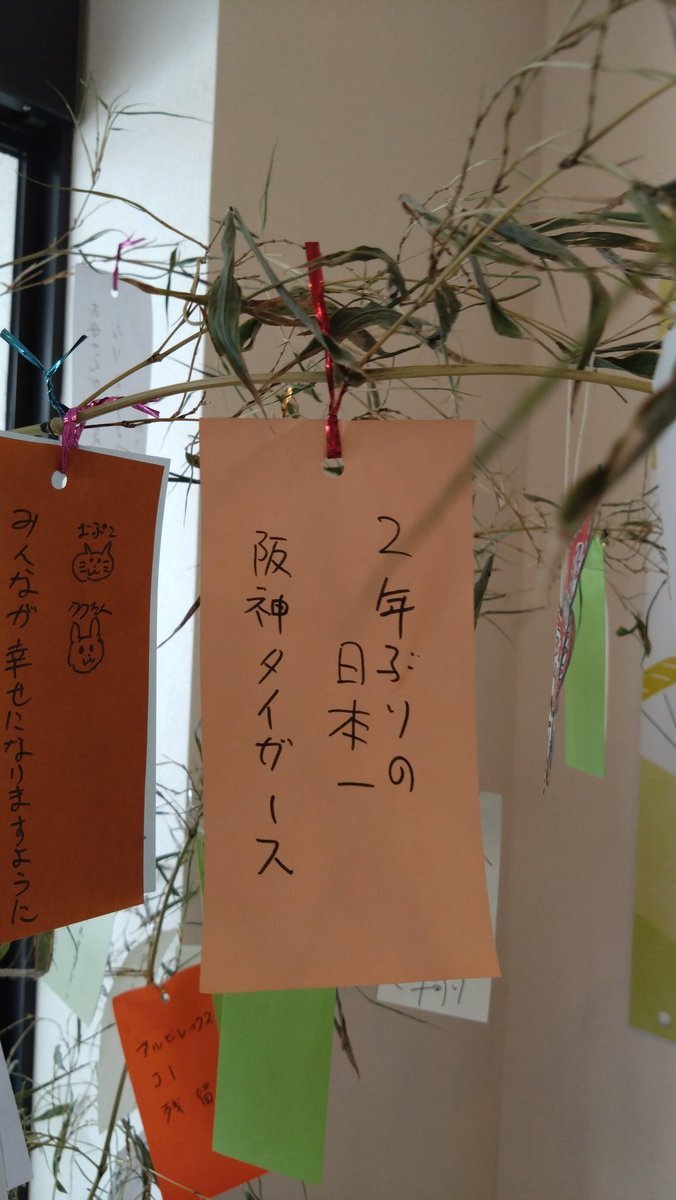 2年ぶりの
日本一
阪神タイガース
みんなが幸せになりますように
アルビレックス
J1
残留